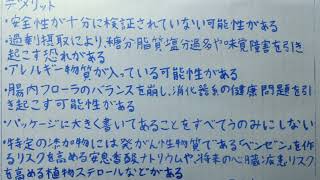 デメリット
・安全性が十分に検証されていない可能性がある
・過剰摂取により、糖分・脂質・塩分過多や味覚障害を引き
起こす恐れがある
・アレルギー物質が入っている可能性がある
・腸内フローラのバランスを崩し、消化器系の健康問題を引
き起こす可能性がある
・パッケージに大きく書いてあることをすべてうのみにしない
・特定の添加物には発がん性物質である「ベンゼン」を作
るリスクを高める安息香酸ナトリウムや、将来の心臓疾患リスク
を高める植物ステロールなどがある